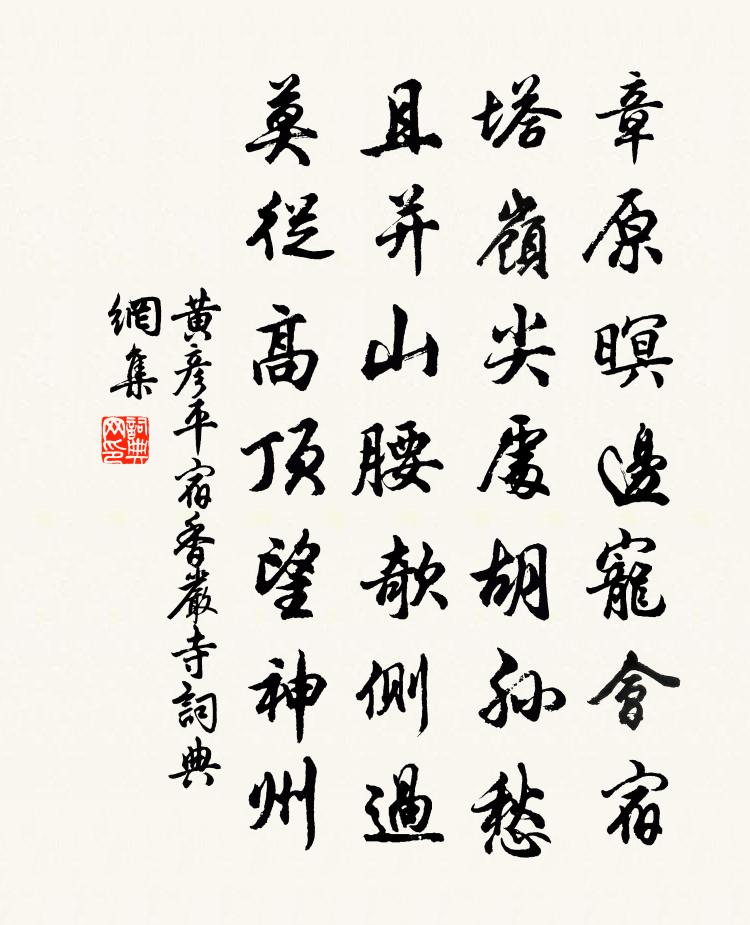 章原暝邊寵會宿
塔嶺尖處胡孫愁
且并山腰欹側過
莫從高頂望神州
黃彥平宿香嚴寺詞典
網集
詞典网印